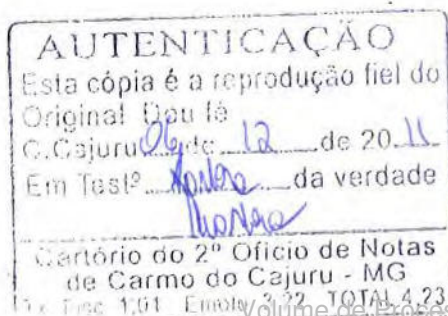 AUTENTICAÇÃO
Esta cópia é a reprodução fiel do
Original Dou fé
C.Cajuru 06 de 12 de 20 11
Em Testº da verdade
Cartório do 2º Ofício de Notas
de Carmo do Cajuru - MG
Tx Fisc 1,01 Emolu 3,22 TOTAL 4,23
Volume de